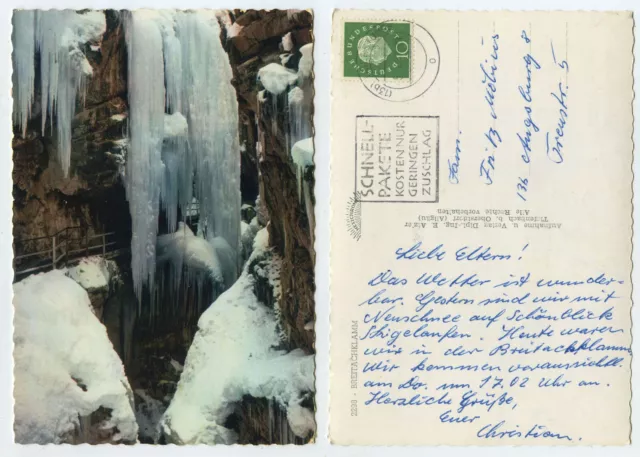 DEUTSCHE
BUNDESPOST
10
SCHNELL-
PAKETE
KOSTEN NUR
GERINGEN
ZUSCHLAG
Fam.
Fritz Möbius
136 Augsburg 8
5
Aufnahme u. Verlag Dipl.-Ing. E.
Tiefenbach b. Oberstdorf (Allgäu)
Alle Rechte vorbehalten
2290 - BREITACHKLAMM
Liebe Eltern!
Das Wetter ist wunder-
bar. Gestern sind wir mit
Neuschnee auf Schönblick
Skigelaufen. Heute waren
wir in der Breitachklamm
Wir kommen voraussichtl.
am Do. um 17.02 Uhr an.
Herzliche Grüße,
Euer
Christian.